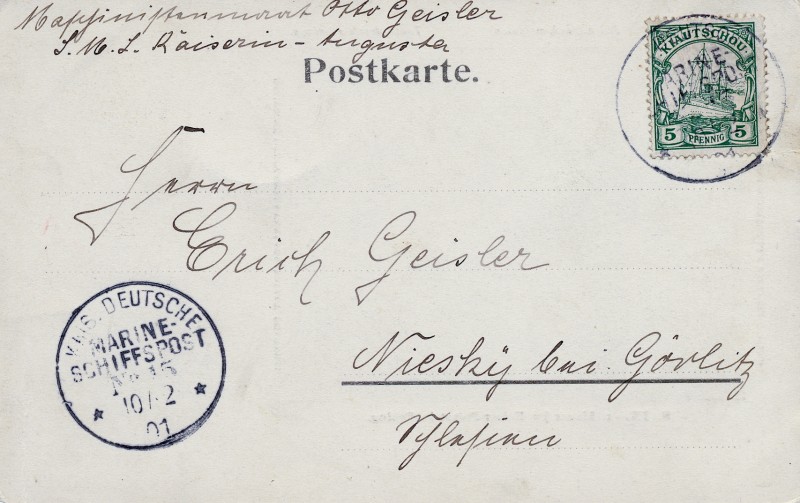 Maschinistenmaat Otto Geisler
S. M. S. Kaiserin-Augusta
Postkarte.
KIAUTSCHOU
5 PFENNIG 5
MARINE
Herrn
Erich Geisler
KAIS. DEUTSCHE
MARINE-
SCHIFFSPOST
No 15
10/2
01
Niesky bei Görlitz
Schlesien